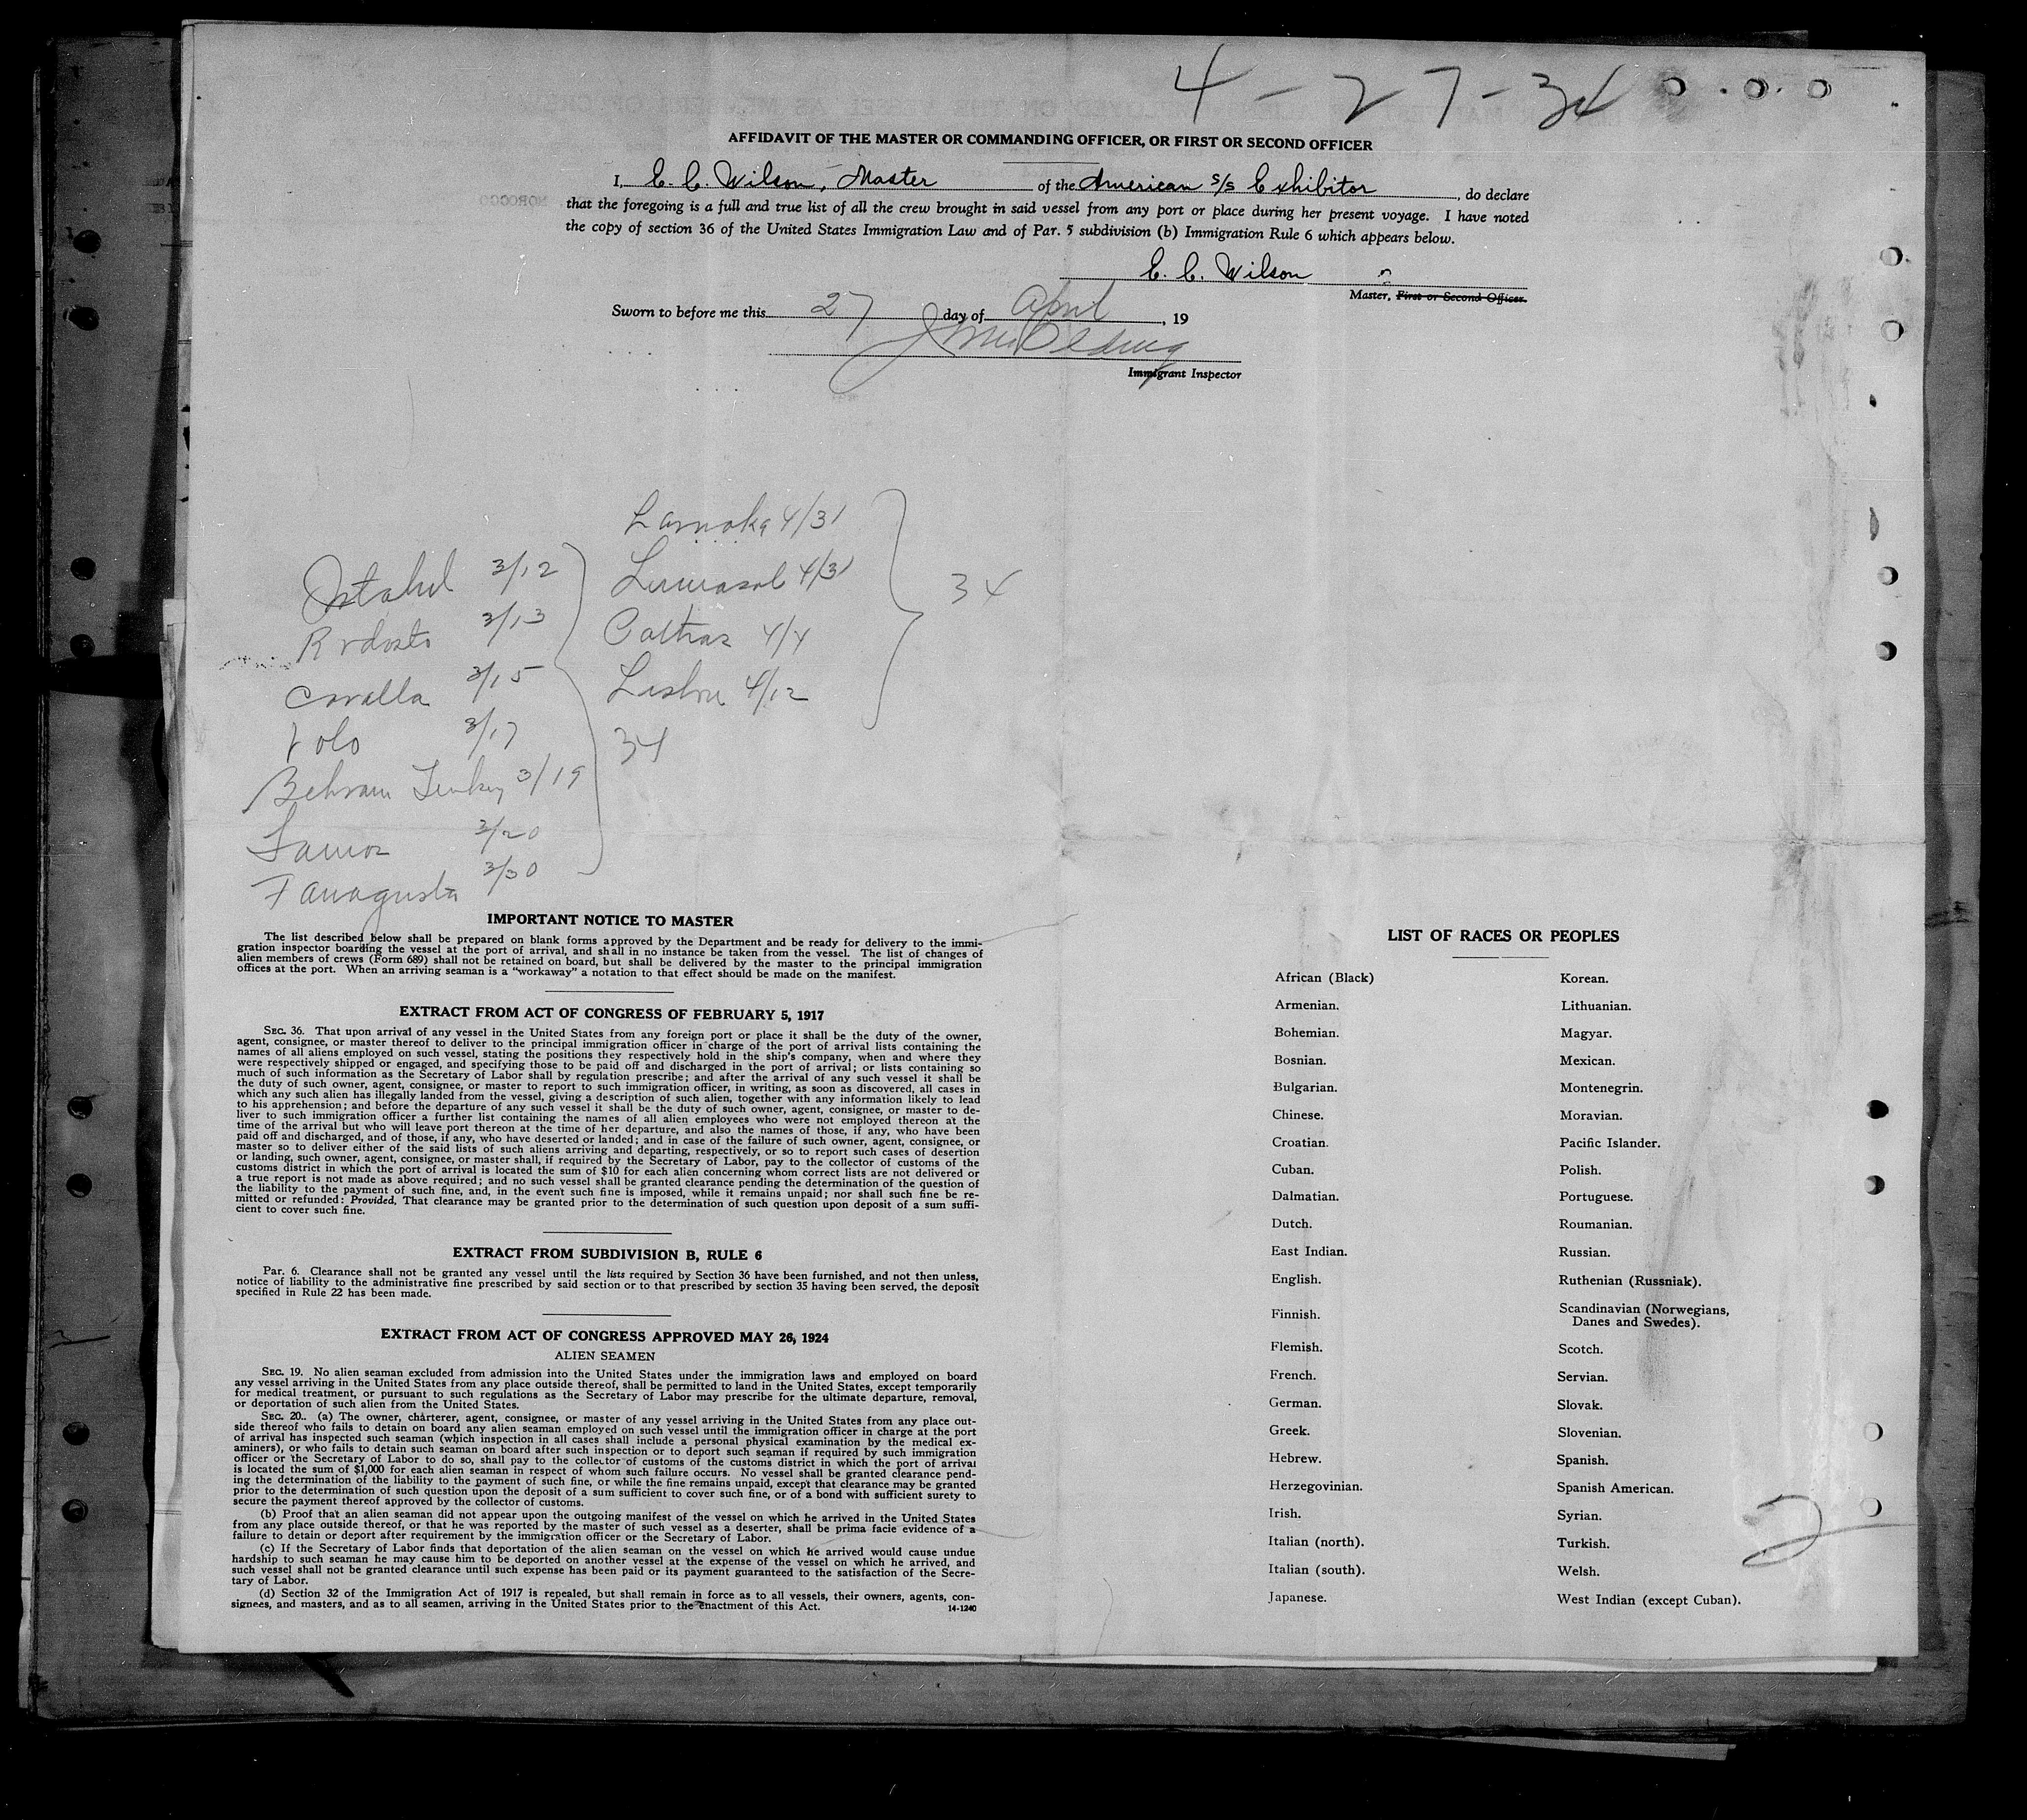 4-27-34
AFFIDAVIT OF THE MASTER OR COMMANDING OFFICER, OR FIRST OR SECOND OFFICER
I, E. C. Wilson, Master of the American s/s Exhibitor, do declare
that the foregoing is a full and true list of all the crew brought in said vessel from any port or place during her present voyage. I have noted
the copy of section 36 of the United States Immigration Law and of Par. 5 subdivision (b) Immigration Rule 6 which appears below.
E. C. Wilson
Master, First or Second Officer.
Sworn to before me this 27 day of April, 19
Immigrant Inspector
Larnaka 4/31
Limasol 4/31
Patras 4/4
Lisbon 4/12
34
Istabul 3/12
Rodosto 3/13
Cavalla 3/15
Volo 3/17
Behram Turkey 3/19
Samos 3/20
Famagusta 3/30
34
IMPORTANT NOTICE TO MASTER
The list described below shall be prepared on blank forms approved by the Department and be ready for delivery to the immi-
gration inspector boarding the vessel at the port of arrival, and shall in no instance be taken from the vessel. The list of changes of
alien members of crews (Form 689) shall not be retained on board, but shall be delivered by the master to the principal immigration
offices at the port. When an arriving seaman is a "workaway" a notation to that effect should be made on the manifest.
EXTRACT FROM ACT OF CONGRESS OF FEBRUARY 5, 1917
SEC. 36. That upon arrival of any vessel in the United States from any foreign port or place it shall be the duty of the owner,
agent, consignee, or master thereof to deliver to the principal immigration officer in charge of the port of arrival lists containing the
names of all aliens employed on such vessel, stating the positions they respectively hold in the ship's company, when and where they
were respectively shipped or engaged, and specifying those to be paid off and discharged in the port of arrival; or lists containing so
much of such information as the Secretary of Labor shall by regulation prescribe; and after the arrival of any such vessel it shall be
the duty of such owner, agent, consignee, or master to report to such immigration officer, in writing, as soon as discovered, all cases in
which any such alien has illegally landed from the vessel, giving a description of such alien, together with any information likely to lead
to his apprehension; and before the departure of any such vessel it shall be the duty of such owner, agent, consignee, or master to de-
liver to such immigration officer a further list containing the names of all alien employees who were not employed thereon at the
time of the arrival but who will leave port thereon at the time of her departure, and also the names of those, if any, who have been
paid off and discharged, and of those, if any, who have deserted or landed; and in case of the failure of such owner, agent, consignee, or
master so to deliver either of the said lists of such aliens arriving and departing, respectively, or so to report such cases of desertion
or landing, such owner, agent, consignee, or master shall, if required by the Secretary of Labor, pay to the collector of customs of the
customs district in which the port of arrival is located the sum of $10 for each alien concerning whom correct lists are not delivered or
a true report is not made as above required; and no such vessel shall be granted clearance pending the determination of the question of
the liability to the payment of such fine, and, in the event such fine is imposed, while it remains unpaid; nor shall such fine be re-
mitted or refunded: Provided, That clearance may be granted prior to the determination of such question upon deposit of a sum suffi-
cient to cover such fine.
EXTRACT FROM SUBDIVISION B, RULE 6
Par. 6. Clearance shall not be granted any vessel until the lists required by Section 36 have been furnished, and not then unless,
notice of liability to the administrative fine prescribed by said section or to that prescribed by section 35 having been served, the deposit
specified in Rule 22 has been made.
EXTRACT FROM ACT OF CONGRESS APPROVED MAY 26, 1924
ALIEN SEAMEN
SEC. 19. No alien seaman excluded from admission into the United States under the immigration laws and employed on board
any vessel arriving in the United States from any place outside thereof, shall be permitted to land in the United States, except temporarily
for medical treatment, or pursuant to such regulations as the Secretary of Labor may prescribe for the ultimate departure, removal,
or deportation of such alien from the United States.
SEC. 20.. (a) The owner, charterer, agent, consignee, or master of any vessel arriving in the United States from any place out-
side thereof who fails to detain on board any alien seaman employed on such vessel until the immigration officer in charge at the port
of arrival has inspected such seaman (which inspection in all cases shall include a personal physical examination by the medical ex-
aminers), or who fails to detain such seaman on board after such inspection or to deport such seaman if required by such immigration
officer or the Secretary of Labor to do so, shall pay to the collector of customs of the customs district in which the port of arrival
is located the sum of $1,000 for each alien seaman in respect of whom such failure occurs. No vessel shall be granted clearance pend-
ing the determination of the liability to the payment of such fine, or while the fine remains unpaid, except that clearance may be granted
prior to the determination of such question upon the deposit of a sum sufficient to cover such fine, or of a bond with sufficient surety to
secure the payment thereof approved by the collector of customs.
(b) Proof that an alien seaman did not appear upon the outgoing manifest of the vessel on which he arrived in the United States
from any place outside thereof, or that he was reported by the master of such vessel as a deserter, shall be prima facie evidence of a
failure to detain or deport after requirement by the immigration officer or the Secretary of Labor.
(c) If the Secretary of Labor finds that deportation of the alien seaman on the vessel on which he arrived would cause undue
hardship to such seaman he may cause him to be deported on another vessel at the expense of the vessel on which he arrived, and
such vessel shall not be granted clearance until such expense has been paid or its payment guaranteed to the satisfaction of the Secre-
tary of Labor.
(d) Section 32 of the Immigration Act of 1917 is repealed, but shall remain in force as to all vessels, their owners, agents, con-
signees, and masters, and as to all seamen, arriving in the United States prior to the enactment of this Act.
14-1240
LIST OF RACES OR PEOPLES
African (Black)
Armenian.
Bohemian.
Bosnian.
Bulgarian.
Chinese.
Croatian.
Cuban.
Dalmatian.
Dutch.
East Indian.
English.
Finnish.
Flemish.
French.
German.
Greek.
Hebrew.
Herzegovinian.
Irish.
Italian (north).
Italian (south).
Japanese.
Korean.
Lithuanian.
Magyar.
Mexican.
Montenegrin.
Moravian.
Pacific Islander.
Polish.
Portuguese.
Roumanian.
Russian.
Ruthenian (Russniak).
Scandinavian (Norwegians,
Danes and Swedes).
Scotch.
Servian.
Slovak.
Slovenian.
Spanish.
Spanish American.
Syrian.
Turkish.
Welsh.
West Indian (except Cuban).
2